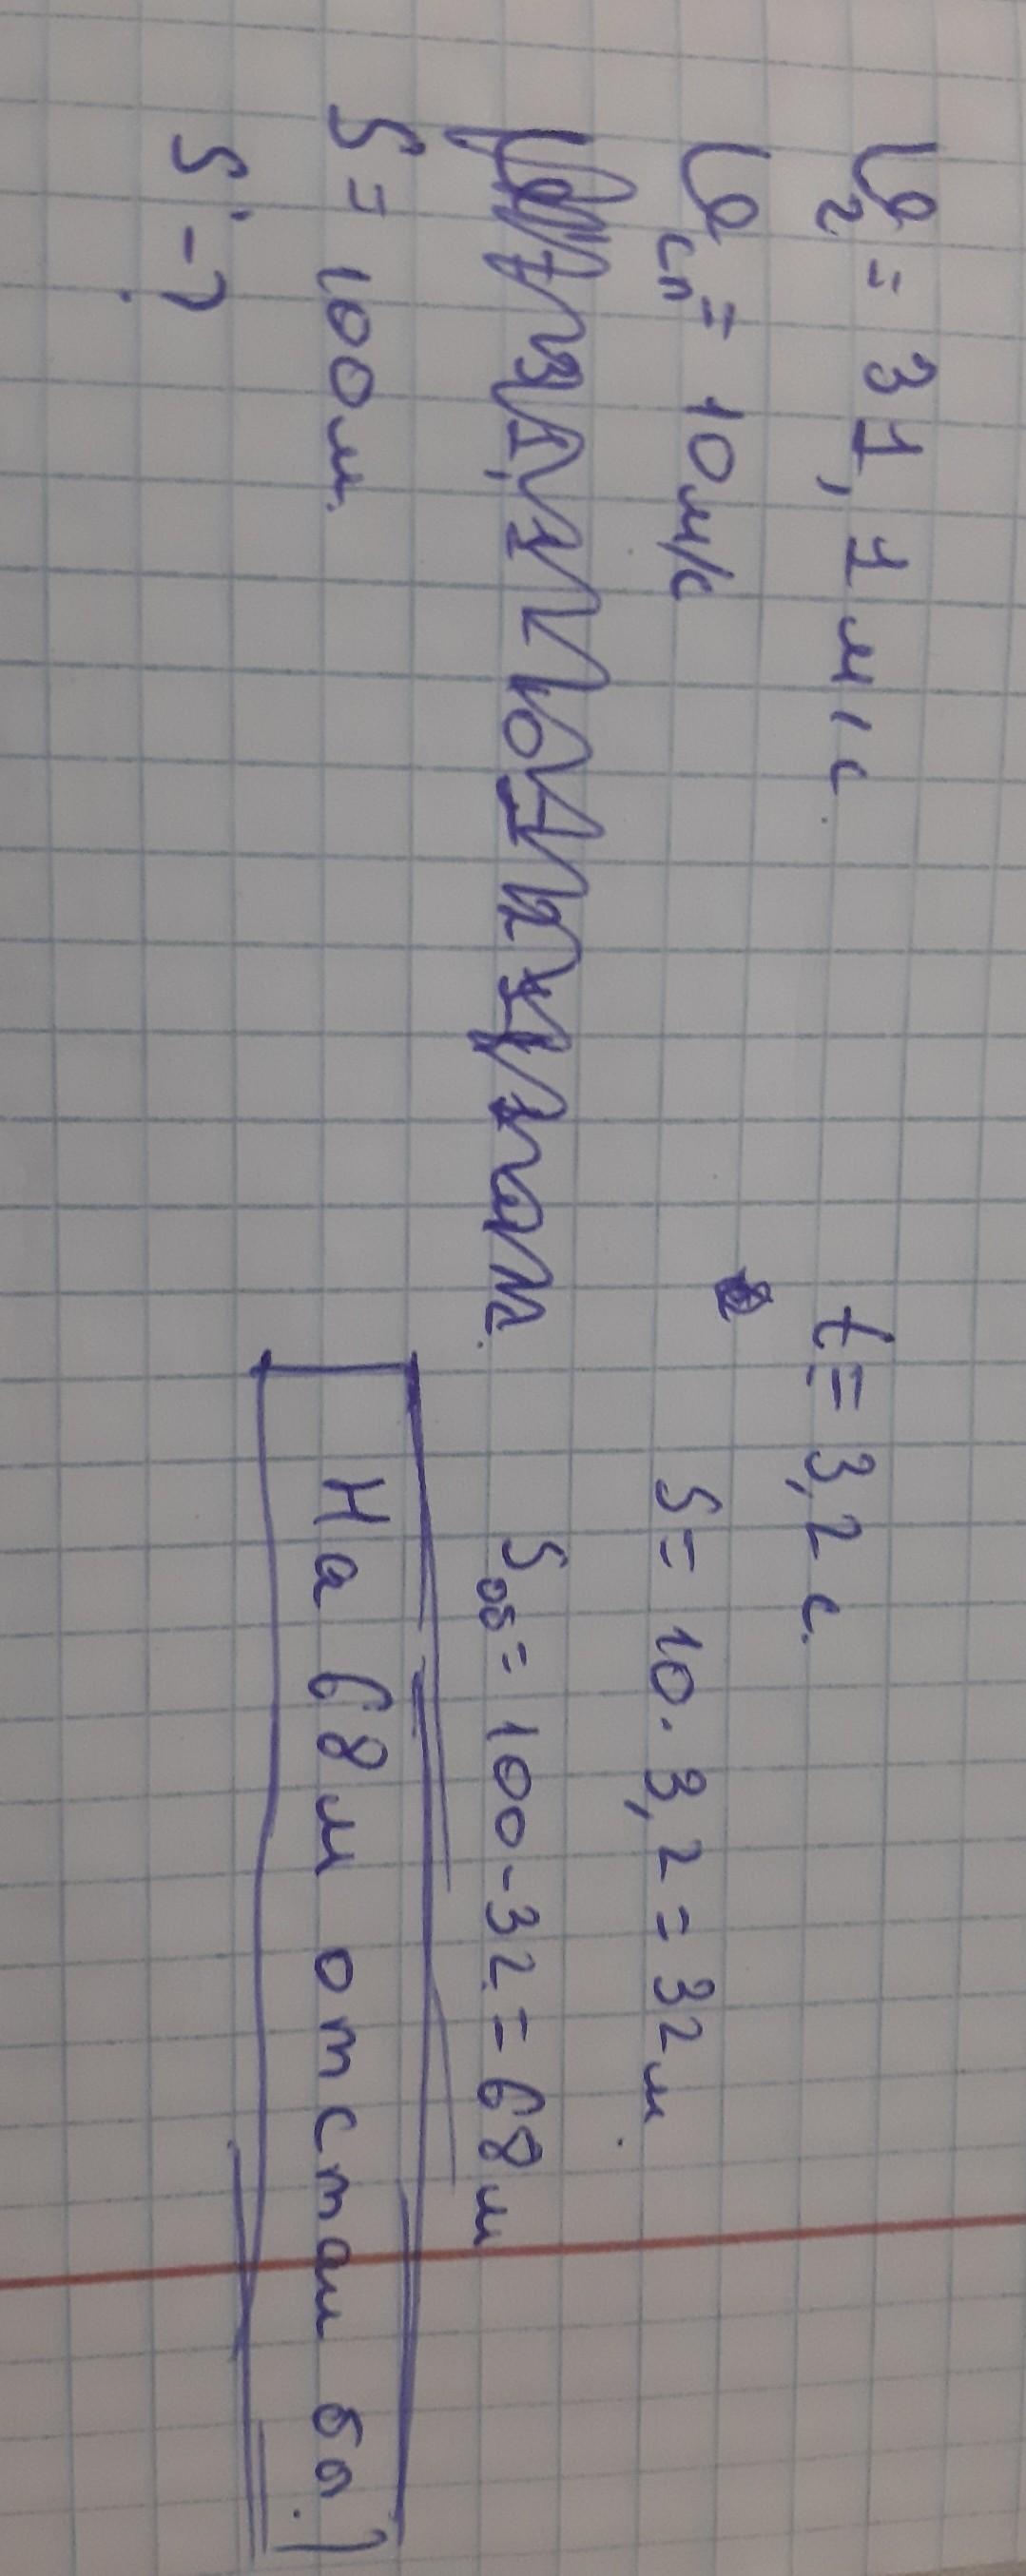 υ₂ = 31,1 м/с.
υсп = 10 м/с
S = 100м.
S' - ?
t = 3,2 с.
S = 10 · 3,2 = 32 м.
Sоб = 100 - 32 = 68 м
На 68 м отстал бы.